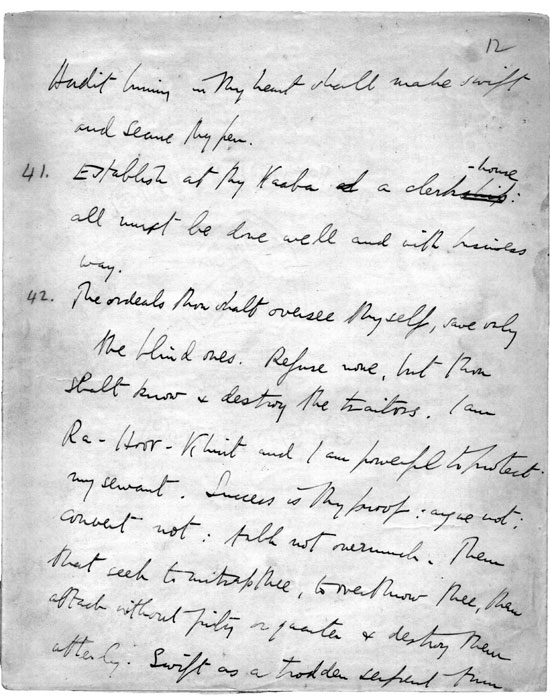 12
Hadit burning in thy heart shall make swift
and secure thy pen.
-house
41. Establish at thy Kaaba a clerkship:
all must be done well and with business
way.
42. The ordeals thou shalt oversee thyself, save only
the blind ones. Refuse none, but thou
shalt know & destroy the traitors. I am
Ra-Hoor-Khuit and I am powerful to protect
my servant. Success is thy proof: argue not:
convert not: talk not overmuch. Them
that seek to entrap thee, to overthrow thee, them
attack without pity or quarter & destroy them
utterly. Swift as a trodden serpent turn